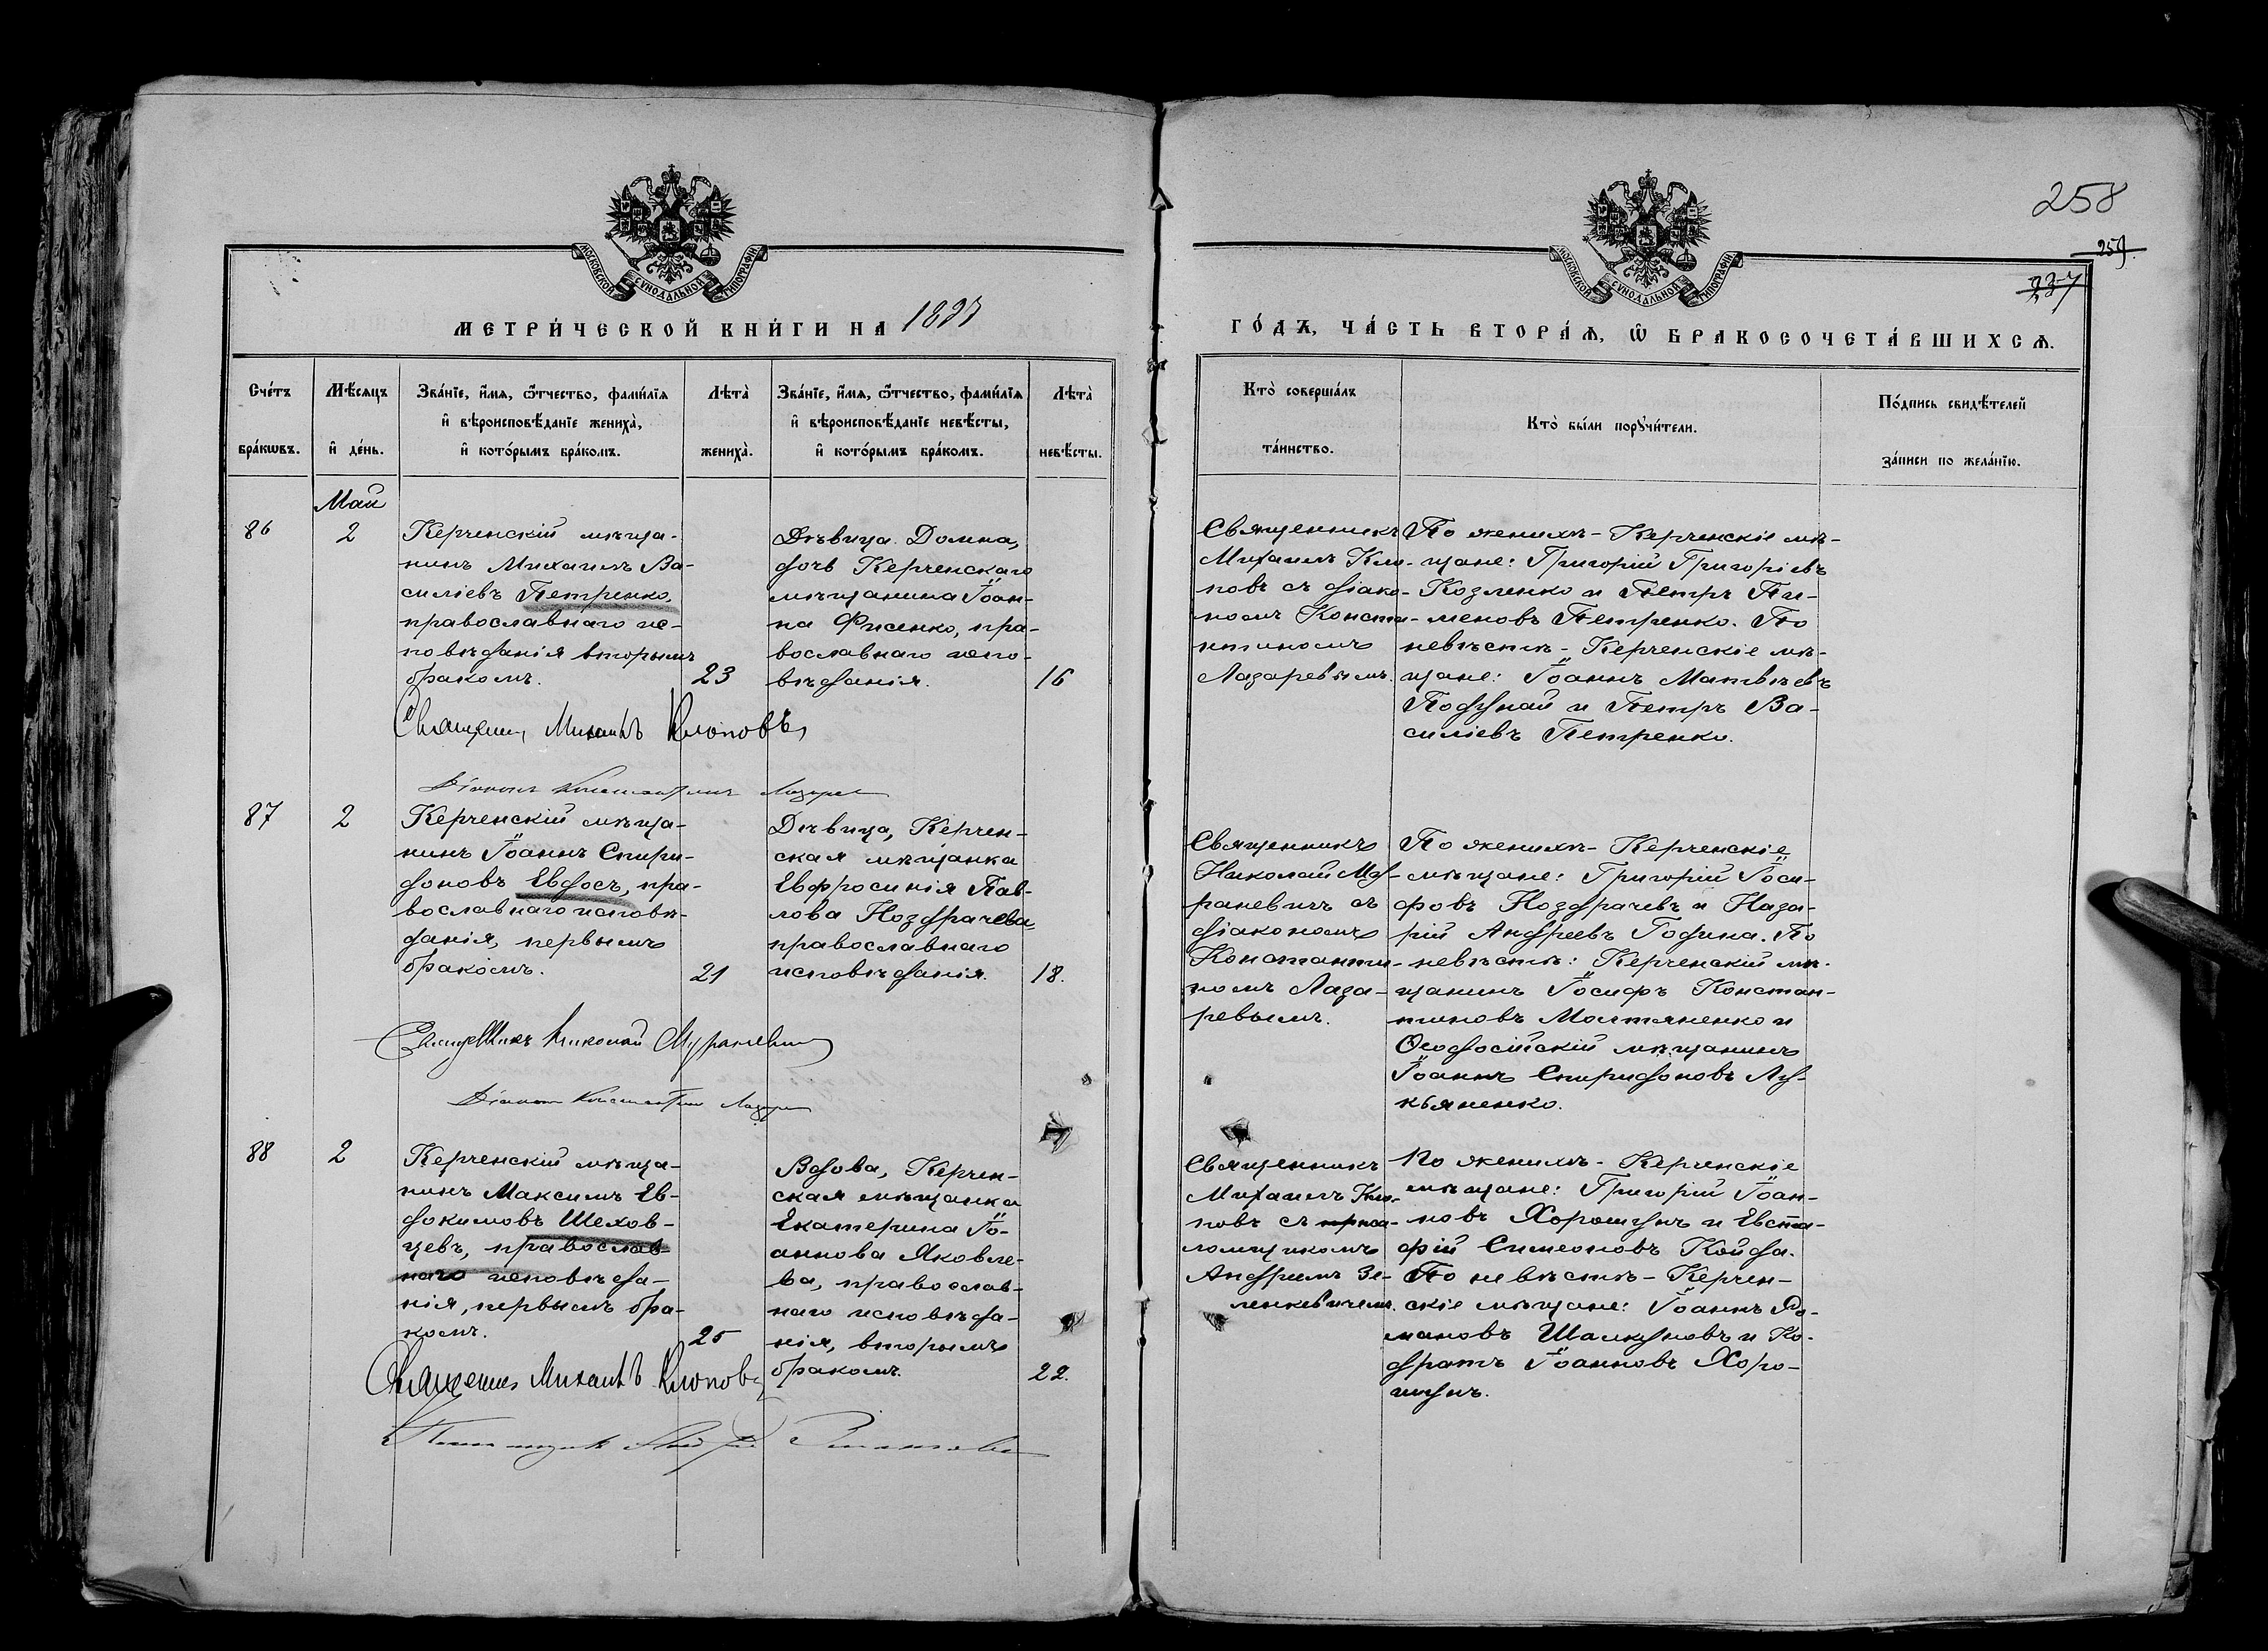 258
259.
237
МОСКОВСКОЙ СѴНОДАЛЬНОЙ ТИПОГРАФІИ
МОСКОВСКОЙ СѴНОДАЛЬНОЙ ТИПОГРАФІИ
МЕТРИ́ЧЕСКОЙ КНИ́ГИ НА 1897
ГО́ДЪ, ЧА́СТЬ ВТОРА́Ѧ, Ѽ БРАКОСОЧЕТА́ВШИХСѦ.
Сче́тъ
бра́кѡвъ.
Мѣ́сяцъ
и҆ де́нь.
Зва́нїе, и҆́мѧ, ѻ҆́тчество, фами́лїѧ
и҆ вѣроисповѣ́данїе жениха̀,
и҆ кото́рымъ бра́комъ.
Лѣта̀
жениха̀.
Зва́нїе, и҆́мѧ, ѻ҆́тчество, фами́лїѧ
и҆ вѣроисповѣ́данїе невѣ́сты,
и҆ кото́рымъ бра́комъ.
Лѣта̀
невѣ́сты.
Кто̀ соверша́лъ
та́инство.
Кто̀ бы́ли порꙋчи́тели.
По́дпись свидѣ́телей
за́писи по жела́нїю.
Май
86
2
Керченскій мѣща-
нинъ Михаилъ Ва-
силіевъ Петренко,
православнаго ис-
повѣданія вторымъ
бракомъ.
23
Дѣвица Домна,
дочь Керченскаго
мѣщанина Іоан-
на Фисенко, пра-
вославнаго испо-
вѣданія.
16
Священникъ
Михаилъ Клю-
повъ съ діако-
номъ Конста-
нтиномъ
Лазаревымъ.
По женихѣ - Керченскіе мѣ-
щане: Григорій Григоріевъ
Козленко и Петръ Пи-
меновъ Петренко. По
невѣстѣ - Керченскіе мѣ-
щане: Іоаннъ Матвѣевъ
Поддунай и Петръ Ва-
силіевъ Петренко.
Священн. Михаилъ Клюповъ,
Діаконъ Константинъ Лазарев
87
2
Керченскій мѣща-
нинъ Іоаннъ Спири-
доновъ Евдосъ, пра-
вославнаго исповѣ-
данія, первымъ
бракомъ.
21
Дѣвица, Керчен-
ская мѣщанка
Евфросинія Пав-
лова Ноздрачева,
православнаго
исповѣданія.
18.
Священникъ
Николай Му-
раневичъ съ
діакономъ
Константи-
номъ Лаза-
ревымъ.
По женихѣ - Керченскіе
мѣщане: Григорій Іоси-
фовъ Ноздрачевъ и Наза-
рій Андреевъ Година. По
невѣстѣ: Керченскій мѣ-
щанинъ Іосифъ Констан-
тиновъ Молтяненко и
Ѳеодосійскій мѣщанинъ
Іоаннъ Спиридоновъ Лу-
кьяненко.
Священникъ Николай Мураневич
Діаконъ Константин Лазарев
88
2
Керченскій мѣща-
нинъ Максимъ Ев-
докимовъ Шехов-
цевъ, православ-
наго исповѣда-
нія, первымъ бра-
комъ.
25
Вдова, Керчен-
ская мѣщанка
Екатерина Іо-
аннова Яковле-
ва, православ-
наго исповѣда-
нія, вторымъ
бракомъ.
22.
Священникъ
Михаилъ Клю-
повъ съ псал-
ломщикомъ
Андреемъ Зе-
ленкевичемъ.
По женихѣ - Керченскіе
мѣщане: Григорій Іоан-
новъ Хорошунъ и Евста-
фій Симеоновъ Койда.
По невѣстѣ - Керчен-
скіе мѣщане: Іоаннъ Ро-
мановъ Шалкуновъ и Ко-
дратъ Іоанновъ Хоро-
шунъ.
Священн. Михаилъ Клюповъ